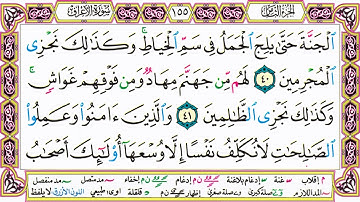 الجزء الثامن ١٥٥ سورة الأعراف
ٱلْجَنَّةَ حَتَّىٰ يَلِجَ ٱلْجَمَلُ فِى سَمِّ ٱلْخِيَاطِ ۚ وَكَذَٰلِكَ نَجْزِى
ٱلْمُجْرِمِينَ ٤٠ لَهُم مِّن جَهَنَّمَ مِهَادٌ وَمِن فَوْقِهِمْ غَوَاشٍ ۚ
وَكَذَٰلِكَ نَجْزِى ٱلظَّٰلِمِينَ ٤١ وَٱلَّذِينَ ءَامَنُوا۟ وَعَمِلُوا۟
ٱلصَّٰلِحَٰتِ لَا نُكَلِّفُ نَفْسًا إِلَّا وُسْعَهَآ أُو۟لَٰٓئِكَ أَصْحَٰبُ